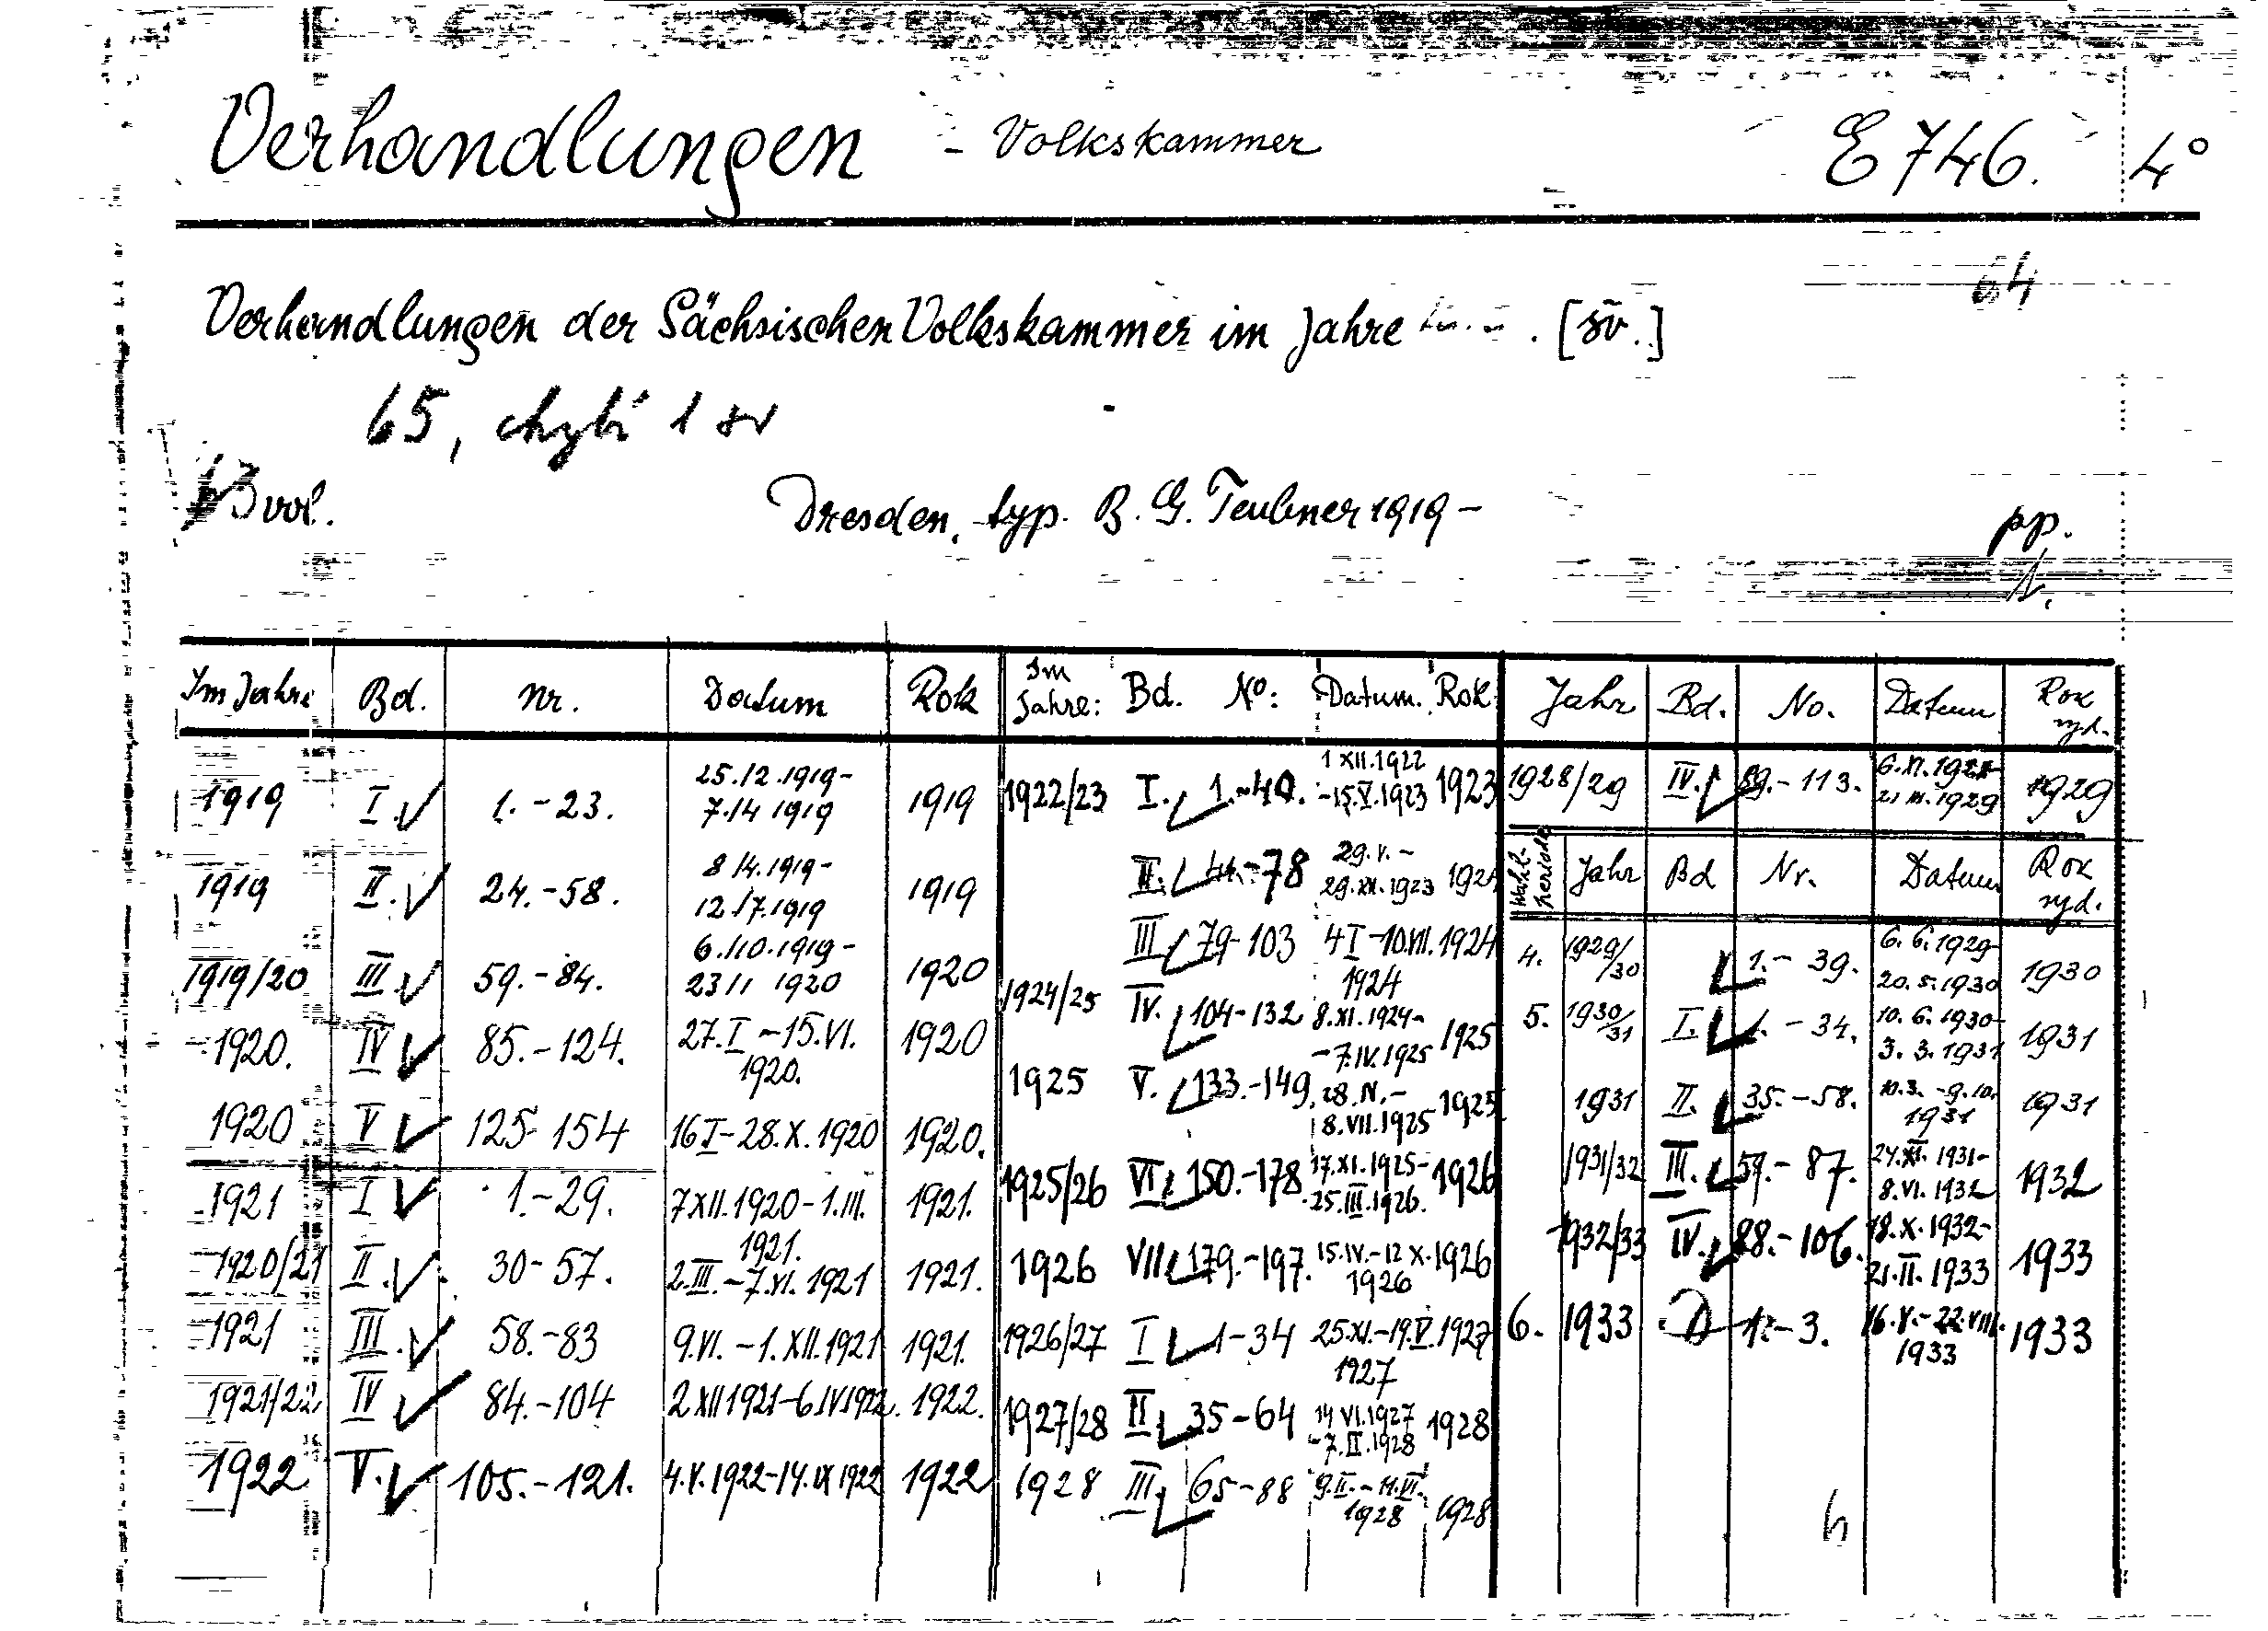 Verhandlungen - Volkskammer E 746. 4°
64
Verhandlungen der Sächsischen Volkskammer im Jahre . [sv.]
65, chybí 1 sv
vol. Dresden, typ. B. G. Teubner 1919 -
pp.
Im Jahre Bd. Nr. Datum Rok
1919 I. 1. - 23. 25./2.1919 - 7./4 1919 1919
1919 II. 24. - 58. 8/4.1919 - 12./7.1919 1919
1919/20 III 59. - 84. 6./10.1919 - 23/1 1920 1920
1920. IV 85. - 124. 27.I - 15.VI. 1920. 1920
1920 V 125 - 154 16 I - 28.X.1920 1920.
1921 I 1. - 29. 7 XII.1920 - 1.III. 1921. 1921.
1920/21 II. 30 - 57. 2.III. - 7.VI.1921 1921.
1921 III. 58. - 83 9.VI. - 1.XII.1921 1921.
1921/22 IV 84. - 104 2 XII 1921 - 6.IV 1922. 1922.
1922 V. 105. - 121. 4.V.1922 - 14.IX 1922 1922
Im Jahre: Bd. No: Datum. Rok
1922/23 I. 1. - 40. 1 XII.1922 - 15.V.1923 1923
II. 41. - 78 29.V. - 29.XI.1923 1924
III 79 - 103 4 I - 10.VII. 1924 1924
1924/25 IV. 104 - 132 8.XI.1924 - - 7.IV.1925 1925
1925 V. 133. - 149. 28.IV. - 8.VII.1925 1925
1925/26 VI 150. - 178 17.XI.1925 - 25.III.1926. 1926
1926 VII 179. - 197. 15.IV. - 12 X. 1926 1926
1926/27 I 1 - 34 25.XI. - 19.V. 1927 1927
1927/28 II 35 - 64 14 VI.1927 - 7.II.1928 1928
1928 III 65 - 88 9.II. - 14.VI. 1928 1928
Jahr Bd. No. Datum Rok vyd.
1928/29 IV. 89. - 113. 1929
Wahlperiode Jahr Bd Nr. Datum Rok vyd.
4. 1929/30 1. - 39. 6.6.1929 - 20.5.1930 1930
5. 1930/31 I. 1. - 34. 10.6.1930 - 3.3.1931 1931
1931 II. 35. - 58. 10.3. - 9.10. 1931 1931
1931/32 III. 59. - 87. 1931 - 8.VI.1932 1932
1932/33 IV. 88. - 106. 18.X.1932 - 21.II.1933 1933
6. 1933 1. - 3. 16.V. - 22.VIII. 1933 1933